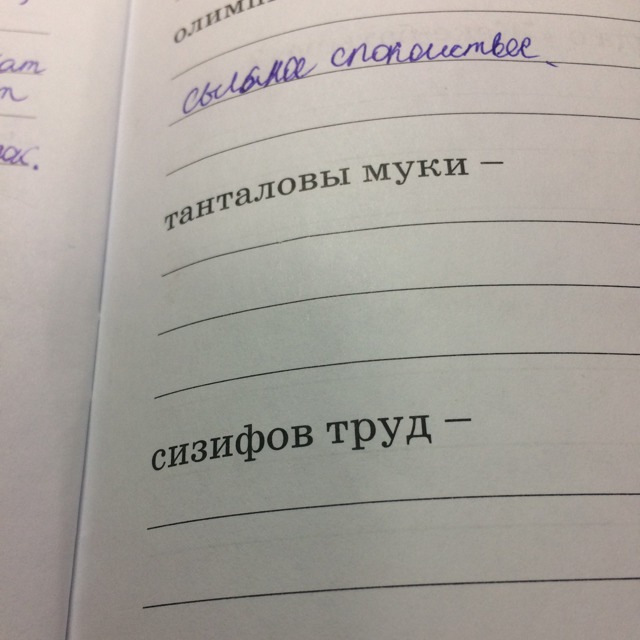 олимпи
сыльное спокоиствее
танталовы муки –
сизифов труд –